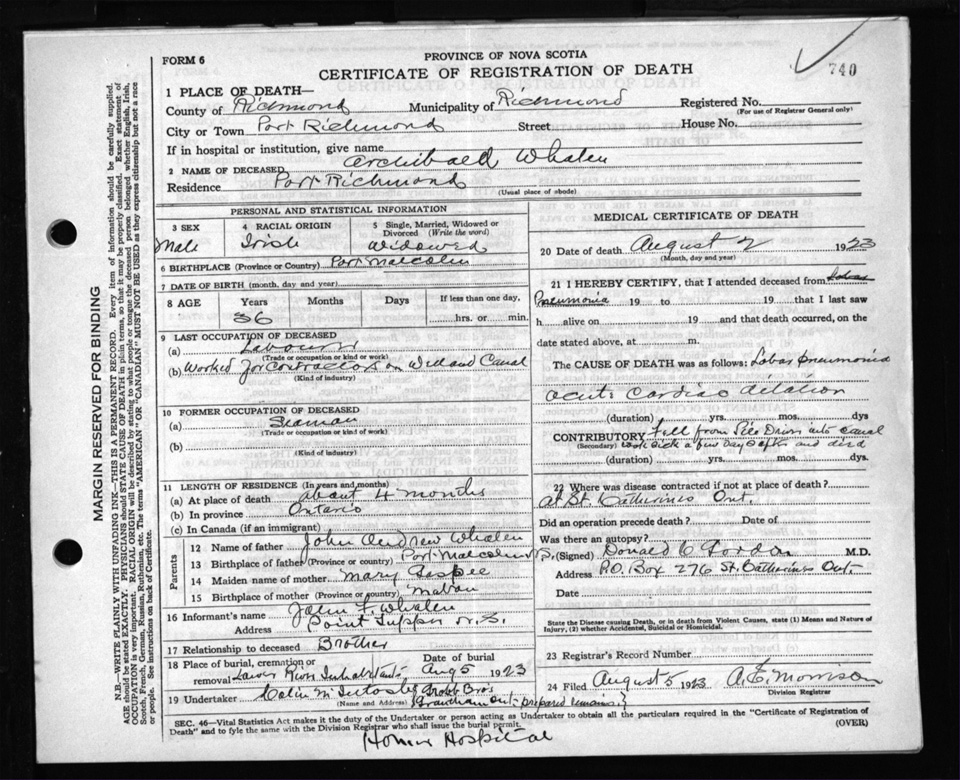 740
FORM 6
PROVINCE OF NOVA SCOTIA
CERTIFICATE OF REGISTRATION OF DEATH
1 PLACE OF DEATH—
County of Richmond Municipality of Richmond Registered No.
(For use of Registrar General only)
City or Town Port Richmond Street House No.
If in hospital or institution, give name
2 NAME OF DECEASED Archibald Whalen
Residence Port Richmond
(Usual place of abode)
PERSONAL AND STATISTICAL INFORMATION
3 SEX 4 RACIAL ORIGIN 5 Single, Married, Widowed or Divorced (Write the word)
Male Irish Widowed
6 BIRTHPLACE (Province or Country) Port Malcolm
7 DATE OF BIRTH (month, day and year)
8 AGE Years Months Days If less than one day,
36 hrs. or min.
9 LAST OCCUPATION OF DECEASED
(a) Labourer
(Trade or occupation or kind or work)
(b) Worked for Contractors on Welland Canal
(Kind of industry)
10 FORMER OCCUPATION OF DECEASED
(a) Seaman
(Trade or occupation or kind or work)
(b)
(Kind of industry)
11 LENGTH OF RESIDENCE (In years and months)
(a) At place of death about 4 months
(b) In province Ontario
(c) In Canada (if an immigrant)
Parents
12 Name of father John Andrew Whalen
13 Birthplace of father (Province or country) Port Malcolm N.S.
14 Maiden name of mother Mary
15 Birthplace of mother (Province or country) Mabou
16 Informant's name John F. Whalen
Address Point Tupper N.S.
17 Relationship to deceased Brother
18 Place of burial, cremation or removal Lower River Inhabitants Date of burial Aug 5 1923
19 Undertaker Colin McIntosh Grobb Bros
(Name and Address) Grantham Ont. prepared remains
MEDICAL CERTIFICATE OF DEATH
20 Date of death August 2 1923
(Month, day and year)
21 I HEREBY CERTIFY, that I attended deceased from Lobar
Pneumonia 19 to 19 that I last saw
h alive on 19 and that death occurred, on
date stated above, at m.
The CAUSE OF DEATH was as follows: Lobar Pneumonia
acute Cardiac dilation
(duration) yrs. mos. dys
CONTRIBUTORY Fell from Pile Driver into Canal
(Secondary) took sick a few days after and died
(duration) yrs. mos. dys
22 Where was disease contracted if not at place of death?
at St. Catherines Ont.
Did an operation precede death? Date of
Was there an autopsy?
(Signed) Donald C Gordon M.D.
Address P.O. Box 276 St. Catherines Ont
Date
State the Disease causing Death, or in death from Violent Causes, state (1) Means and Nature of Injury, (2) whether Accidental, Suicidal or Homicidal.
23 Registrar's Record Number
24 Filed August 5 1923 A.E. Morrison
Division Registrar
SEC. 46—Vital Statistics Act makes it the duty of the Undertaker or person acting as Undertaker to obtain all the particulars required in the "Certificate of Registration of
Death" and to fyle the same with the Division Registrar who shall issue the burial permit. (OVER)
Homer Hospital
MARGIN RESERVED FOR BINDING
N.B.—WRITE PLAINLY WITH UNFADING INK—THIS IS A PERMANENT RECORD. Every item of information should be carefully supplied.
AGE should be stated EXACTLY. PHYSICIANS should STATE CAUSE OF DEATH in plain terms, so that it may be properly classified. Exact statement of
OCCUPATION is very important. RACIAL ORIGIN will be described by stating to what people or tongue the deceased person belonged whether English, Irish,
Scotch, French, German, Russian, Ruthenian, etc. The terms "AMERICAN" OR "CANADIAN" MUST NOT BE USED as they express citizenship but not a race
or people. See instructions on back of Certificate.